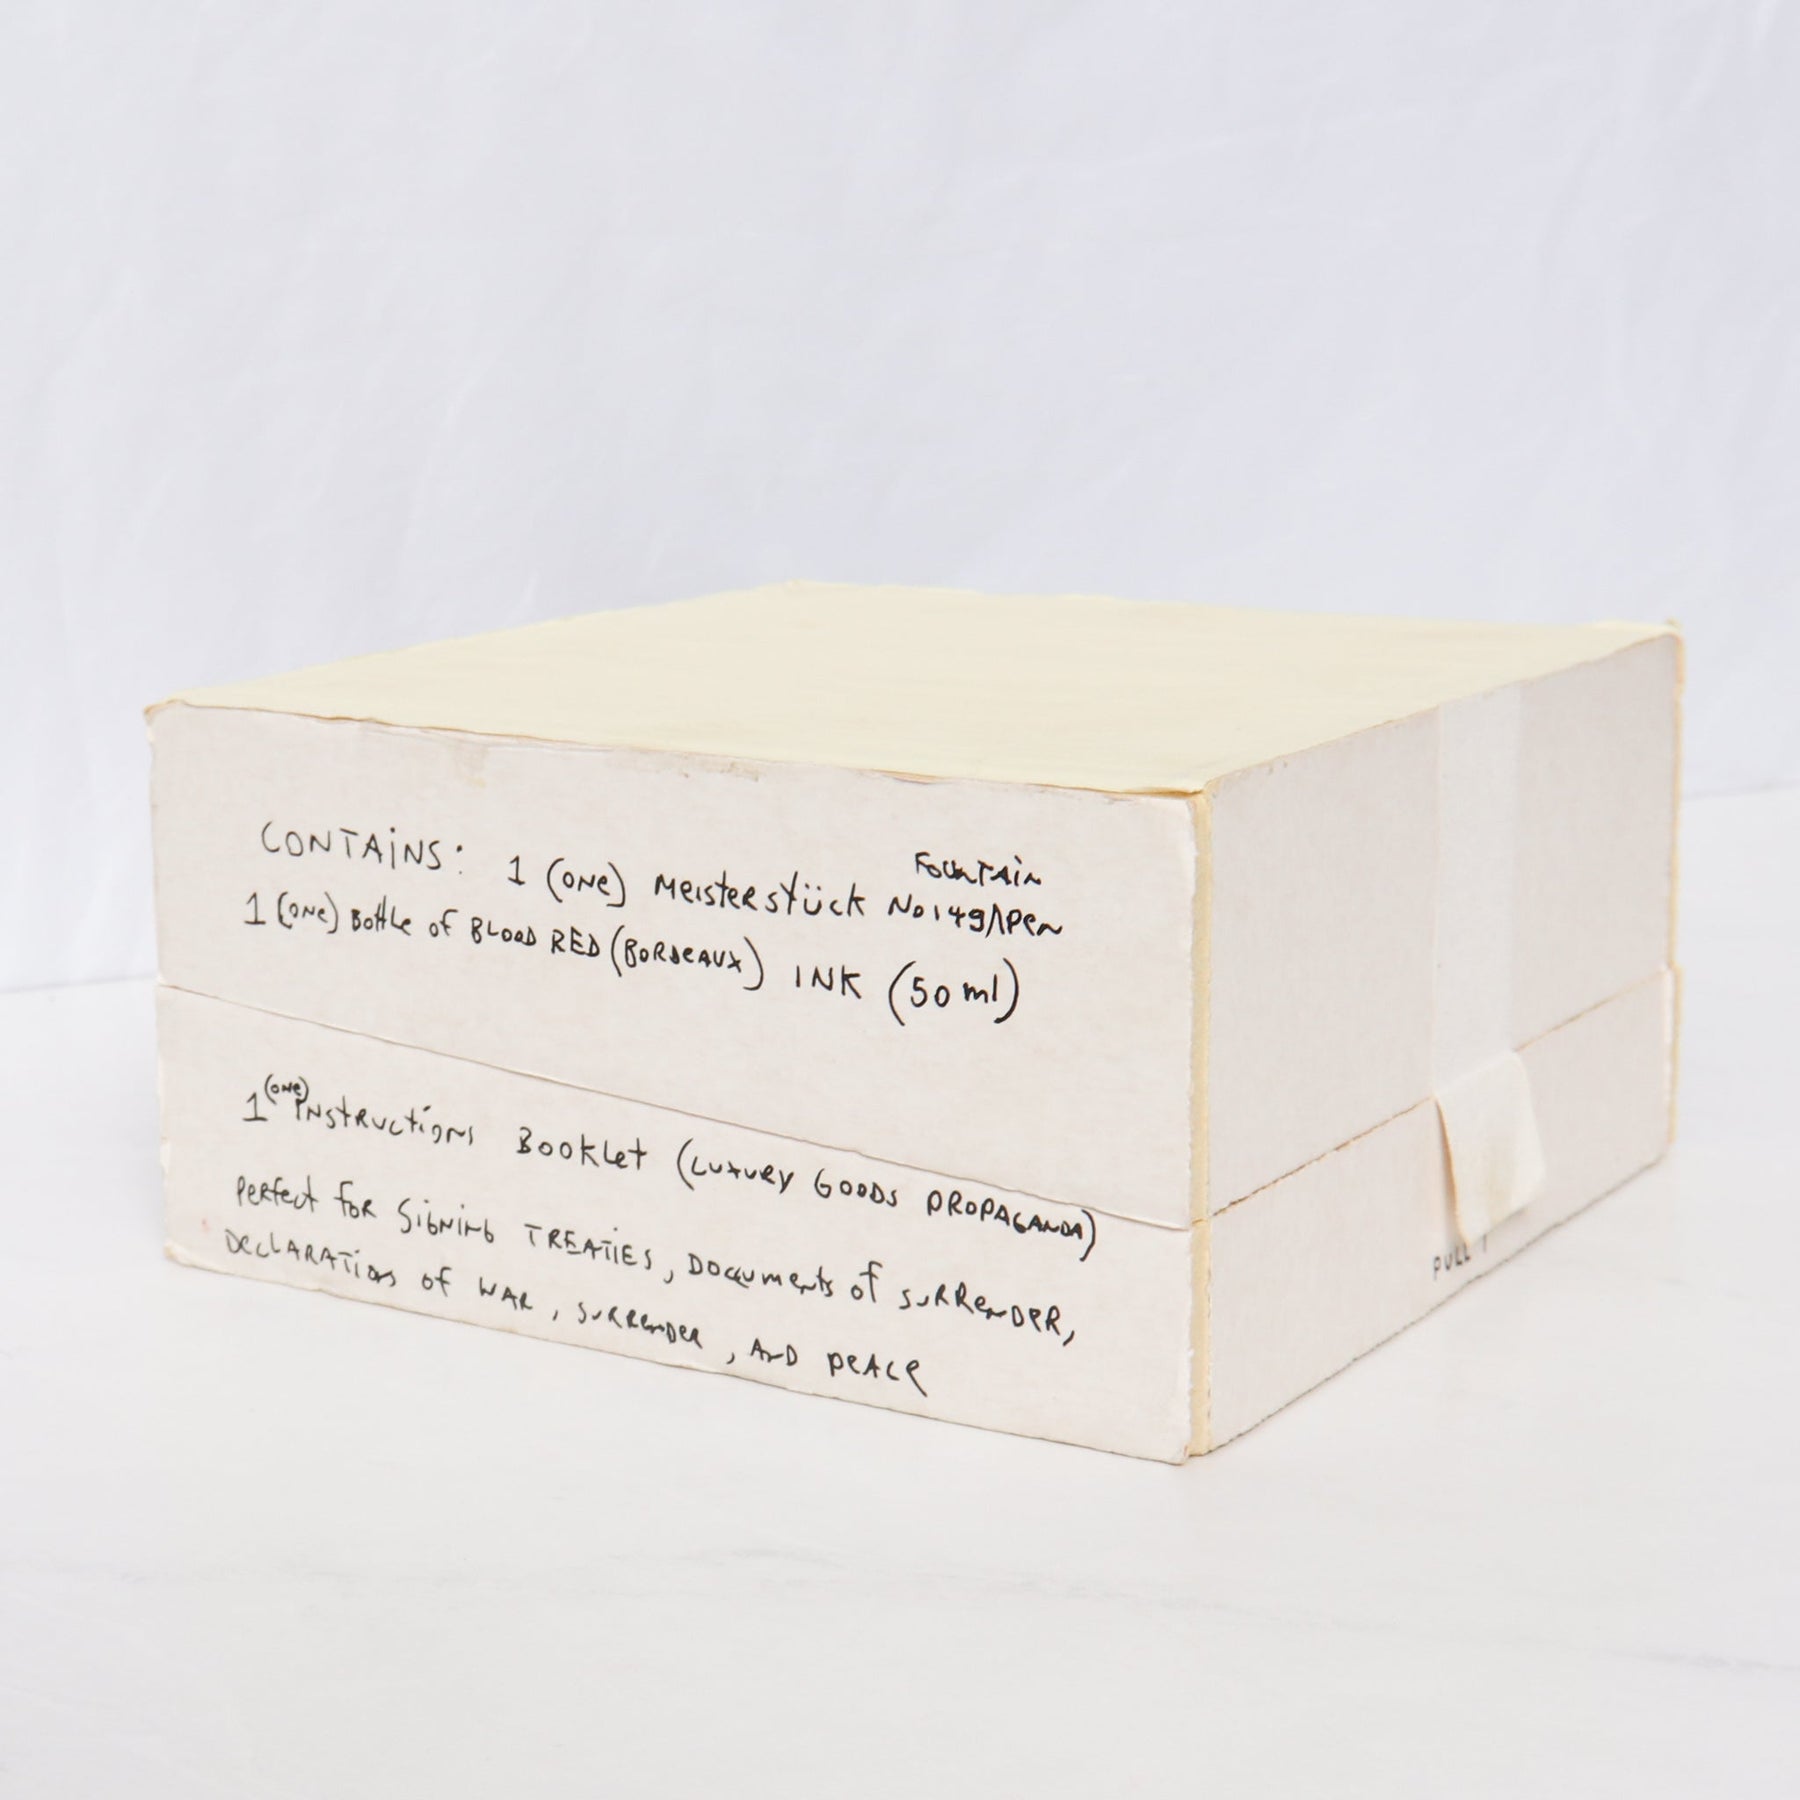 CONTAINS: 1 (ONE) MEISTERSTÜCK No149/\PEN
FOUNTAIN
1 (ONE) BOTTLE OF BLOOD RED (BORDEAUX) INK (50 ml)
1 (ONE) INSTRUCTIONS BOOKLET (LUXURY GOODS PROPAGANDA)
PERFECT FOR SIGNING TREATIES, DOCUMENTS OF SURRENDER,
DECLARATIONS OF WAR, SURRENDER, AND PEACE
PULL